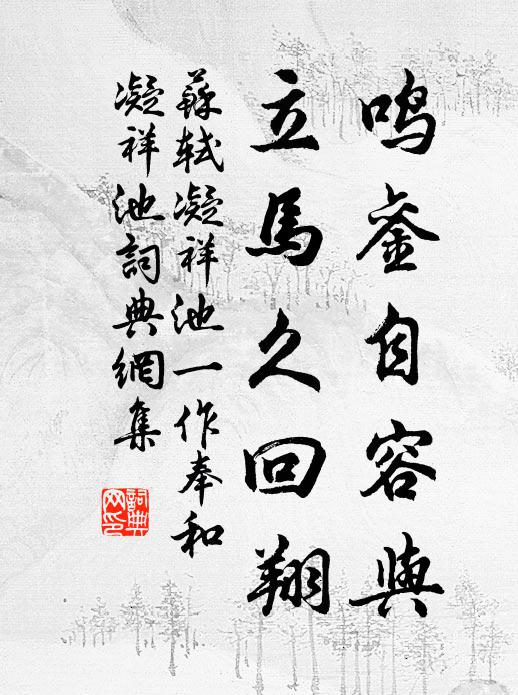 鸣銮自容與
立馬久回翔
蘇軾凝祥池一作奉和
凝祥池詞典網集
詞典
网印